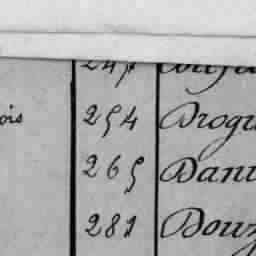 ois 254 Drogu
265 Dani
281 Douz